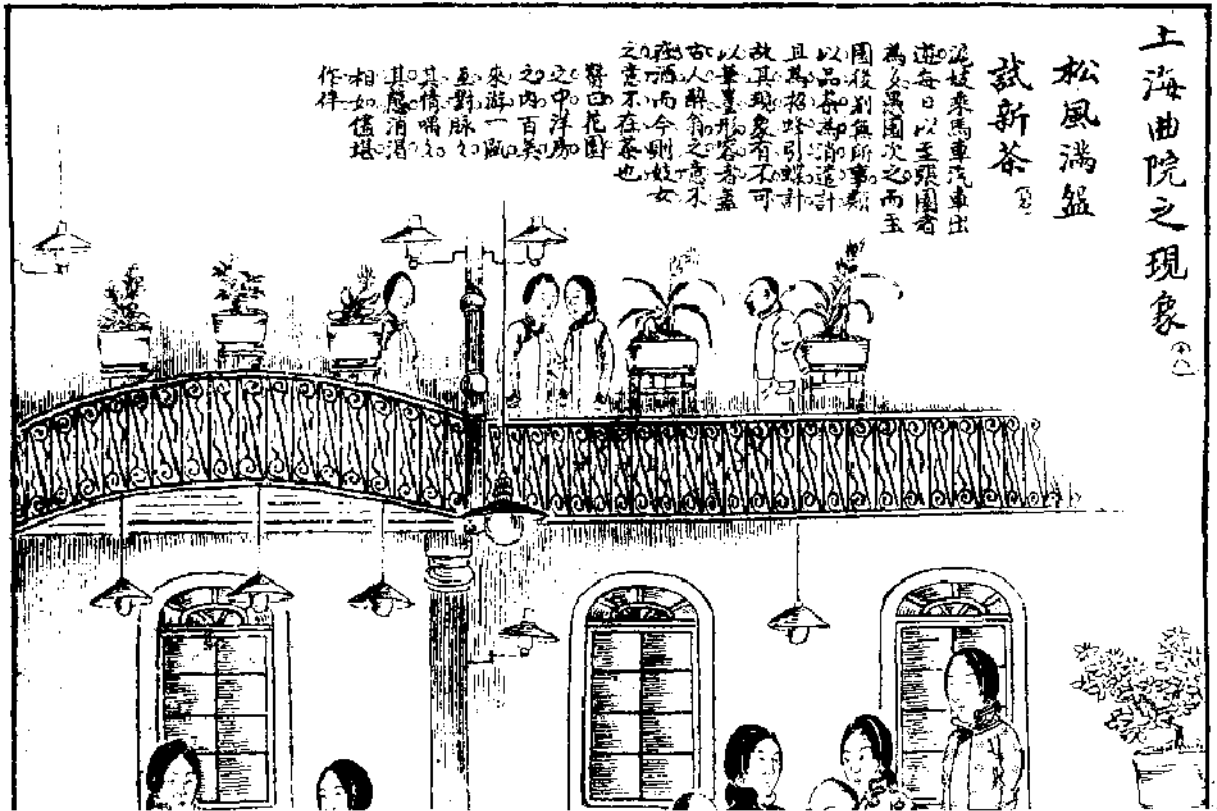 上海曲院之現象 (十八)
松風滿盌
試新茶
滬妓乘馬車汽車出
遊每日以至張園者
為多愚園次之而至
園後別無所事類
以品茶為消遣計
且為招蜂引蝶計
故其現象有不可
以筆墨形容者蓋
古人醉翁之意不
在酒而今則妓女
之意不在茶也
贊曰花園
之中洋房
之內百美
來游一甌
互對脉々
其情喁々
其態消渴
相如儘堪
作伴